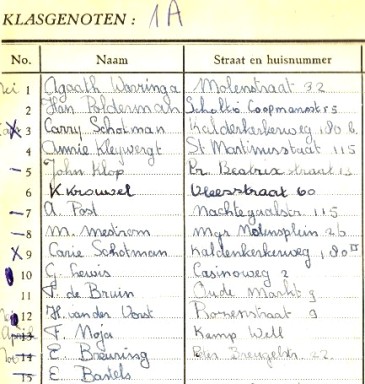 KLASGENOTEN: 1A
No. Naam Straat en huisnummer
1 Agaath Warringa Molenstraat 32
2 Han Polderman Scholtis Coopmansstr 5
3 Carry Schotman Kalderkerkerweg 180 b.
4 Annie Kleywergt St Martinusstraat 115
5 John Klop Pr. Beatrix straat 13
6 K Krouwel Vleesstraat 60
7 A. Post Nachtegaalstr. 115
8 M. Mestrom Mgr Nolensplein 2b
9 Carie Schotman Kaldenkerkerweg 180 II
10 G. Lewis Casinoweg 2
11 F. de Bruin Oude Markt 9
12 H. van der Vorst Borenstraat 9
13 F. Noja Kamp Well
14 E Breuring Pter Breugelstr. 22.
15 E Bastels